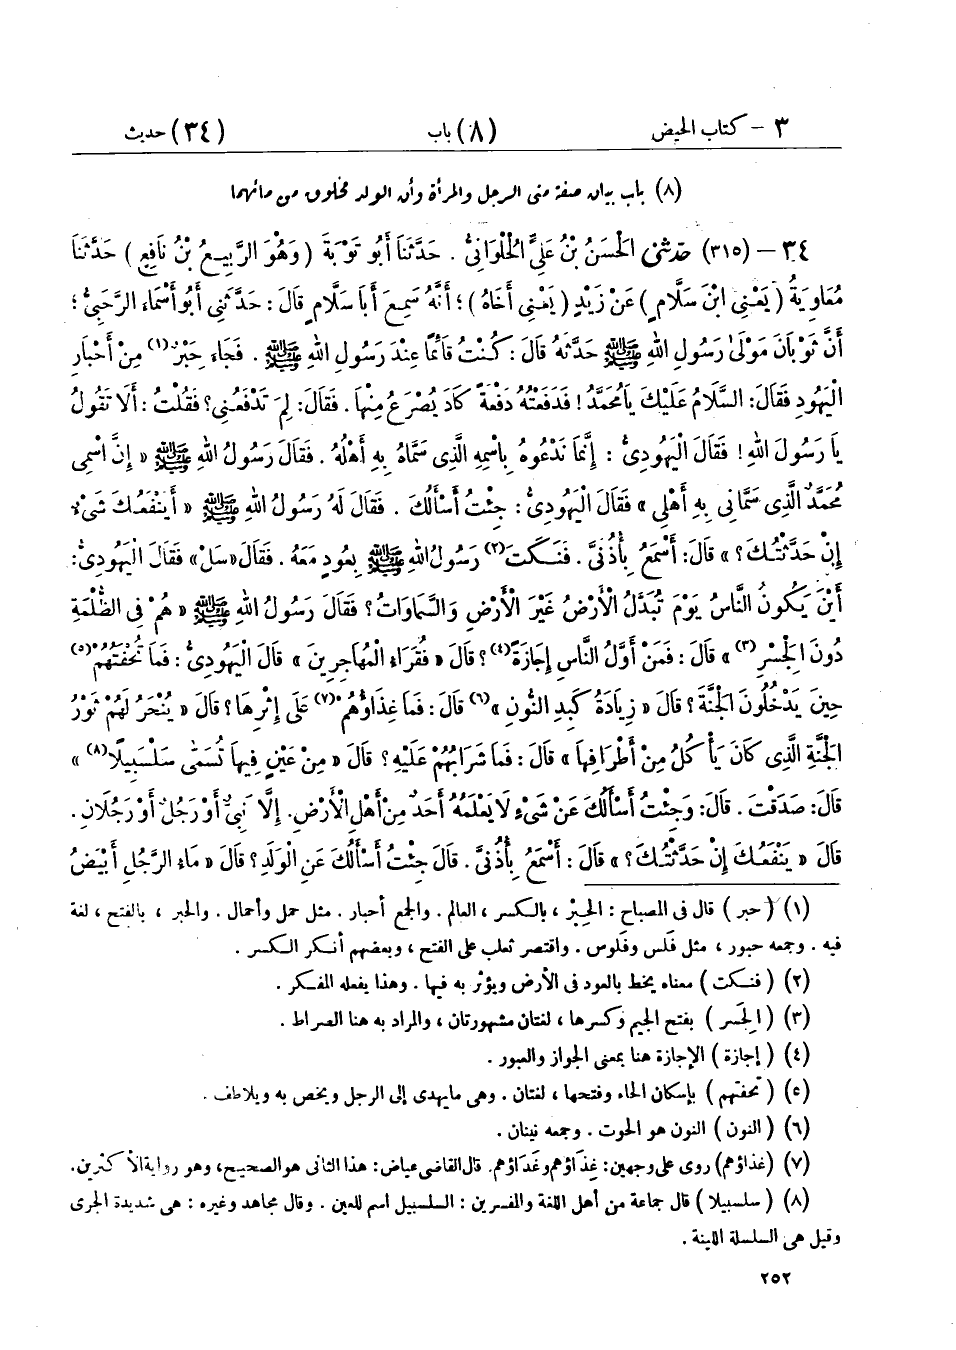 ٣ – كتاب الحيض (٨) باب (٣٤) حديث
(٨) باب بيان صفة منى الرجل والمرأة وأن الولد مخلوق من مائهما
٣٤ – (٣١٥) حَدَّثَنِى الْحَسَنُ بْنُ عَلِىٍّ الْحُلْوَانِىُّ . حَدَّثَنَا أَبُو تَوْبَةَ ( وَهُوَ الرَّبِيعُ بْنُ نَافِعٍ ) حَدَّثَنَا
مُعَاوِيَةُ ( يَعْنِى ابْنَ سَلَّامٍ ) عَنْ زَيْدٍ ( يَعْنِى أَخَاهُ ) ؛ أَنَّهُ سَمِعَ أَبَا سَلَّامٍ قَالَ : حَدَّثَنِى أَبُو أَسْمَاءَ الرَّحَبِىُّ ؛
أَنَّ ثَوْبَانَ مَوْلَى رَسُولِ اللهِ ﷺ حَدَّثَهُ قَالَ : كُنْتُ قَائِمًا عِنْدَ رَسُولِ اللهِ ﷺ . فَجَاءَ حَبْرٌ(١) مِنْ أَحْبَارِ
الْيَهُودِ فَقَالَ : السَّلَامُ عَلَيْكَ يَا مُحَمَّدُ ! فَدَفَعْتُهُ دَفْعَةً كَادَ يُصْرَعُ مِنْهَا . فَقَالَ : لِمَ تَدْفَعُنِى ؟ فَقُلْتُ : أَلَا تَقُولُ
يَا رَسُولَ اللهِ ! فَقَالَ الْيَهُودِىُّ : إِنَّمَا نَدْعُوهُ بِاسْمِهِ الَّذِى سَمَّاهُ بِهِ أَهْلُهُ . فَقَالَ رَسُولُ اللهِ ﷺ « إِنَّ اسْمِى
مُحَمَّدٌ الَّذِى سَمَّانِى بِهِ أَهْلِى » فَقَالَ الْيَهُودِىُّ : جِئْتُ أَسْأَلُكَ . فَقَالَ لَهُ رَسُولُ اللهِ ﷺ « أَيَنْفَعُكَ شَىْءٌ
إِنْ حَدَّثْتُكَ ؟ » قَالَ : أَسْمَعُ بِأُذُنَىَّ . فَنَكَتَ(٢) رَسُولُ اللهِ ﷺ بِعُودٍ مَعَهُ . فَقَالَ « سَلْ » فَقَالَ الْيَهُودِىُّ :
أَيْنَ يَكُونُ النَّاسُ يَوْمَ تُبَدَّلُ الْأَرْضُ غَيْرَ الْأَرْضِ وَالسَّمَاوَاتُ ؟ فَقَالَ رَسُولُ اللهِ ﷺ « هُمْ فِى الظُّلْمَةِ
دُونَ الْجِسْرِ(٣) » قَالَ : فَمَنْ أَوَّلُ النَّاسِ إِجَازَةً(٤) ؟ قَالَ « فُقَرَاءُ الْمُهَاجِرِينَ » قَالَ الْيَهُودِىُّ : فَمَا تُحْفَتُهُمْ(٥)
حِينَ يَدْخُلُونَ الْجَنَّةَ ؟ قَالَ « زِيَادَةُ كَبِدِ النُّونِ »(٦) قَالَ : فَمَا غِذَاؤُهُمْ(٧) عَلَى إِثْرِهَا ؟ قَالَ « يُنْحَرُ لَهُمْ ثَوْرُ
الْجَنَّةِ الَّذِى كَانَ يَأْكُلُ مِنْ أَطْرَافِهَا » قَالَ : فَمَا شَرَابُهُمْ عَلَيْهِ ؟ قَالَ « مِنْ عَيْنٍ فِيهَا تُسَمَّى سَلْسَبِيلًا(٨) »
قَالَ : صَدَقْتَ . قَالَ : وَجِئْتُ أَسْأَلُكَ عَنْ شَىْءٍ لَا يَعْلَمُهُ أَحَدٌ مِنْ أَهْلِ الْأَرْضِ . إِلَّا نَبِىٌّ أَوْ رَجُلٌ أَوْ رَجُلَانِ .
قَالَ « يَنْفَعُكَ إِنْ حَدَّثْتُكَ ؟ » قَالَ : أَسْمَعُ بِأُذُنَىَّ . قَالَ جِئْتُ أَسْأَلُكَ عَنِ الْوَلَدِ ؟ قَالَ « مَاءُ الرَّجُلِ أَبْيَضُ
(١) ( حبر ) قال فى المصباح : الحِبْر ، بالكسر ، العالم . والجمع أحبار . مثل حمل وأحمال . والحبر ، بالفتح ، لغة
فيه . وجمعه حبور ، مثل فَلس وفلوس . واقتصر ثعلب على الفتح ، وبعضهم أنكر الكسر .
(٢) ( فنكت ) معناه يخط بالعود فى الأرض ويؤثر به فيها . وهذا يفعله المفكر .
(٣) ( الجَسر ) بفتح الجيم وكسرها ، لغتان مشهورتان ، والمراد به هنا الصراط .
(٤) ( إجازة ) الإجازة هنا بمعنى الجواز والعبور .
(٥) ( تحفتهم ) بإسكان الحاء وفتحها ، لغتان . وهى ما يهدى إلى الرجل ويخص به ويلاطف .
(٦) ( النون ) النون هو الحوت . وجمعه نينان .
(٧) ( غذاؤهم ) روى على وجهين : غِذَاؤهم وغَدَاؤهم . قال القاضى عياض : هذا الثانى هو الصحيح ، وهو رواية الأكثرين .
(٨) ( سلسبيلا ) قال جماعة من أهل اللغة والمفسرين : السلسبيل اسم للعين . وقال مجاهد وغيره : هى شديدة الجرى
وقيل هى السلسلة اللينة .
٢٥٢